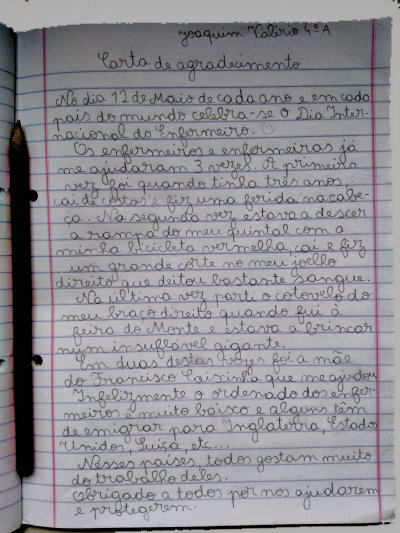 Joaquim Valério 4º A
Carta de agradecimento
No dia 12 de Maio de cada ano e em cada
país do mundo celebra-se o Dia Inter-
nacional do Enfermeiro.
Os enfermeiros e enfermeiras já
me ajudaram 3 vezes. A primeira
vez foi quando tinha três anos,
caí de costas e fiz uma ferida na cabe-
ça. Na segunda vez estava a descer
a rampa do meu quintal com a
minha bicicleta vermelha, caí e fiz
um grande corte no meu joelho
direito que deitou bastante sangue.
Na última vez parti o cotovelo do
meu braço direito quando fui á
feira do Monte e estava a brincar
num insuflável gigante.
Em duas destas vezes foi a mãe
do Francisco Caixinha que me ajudou
Infelizmente o ordenado dos enfer-
meiros é muito baixo e alguns têm
de emigrar para Inglaterra, Estados
Unidos, Suíça, etc...
Nesses países, todos gostam muito
do trabalho deles.
Obrigado a todos por nos ajudarem
e protegerem.